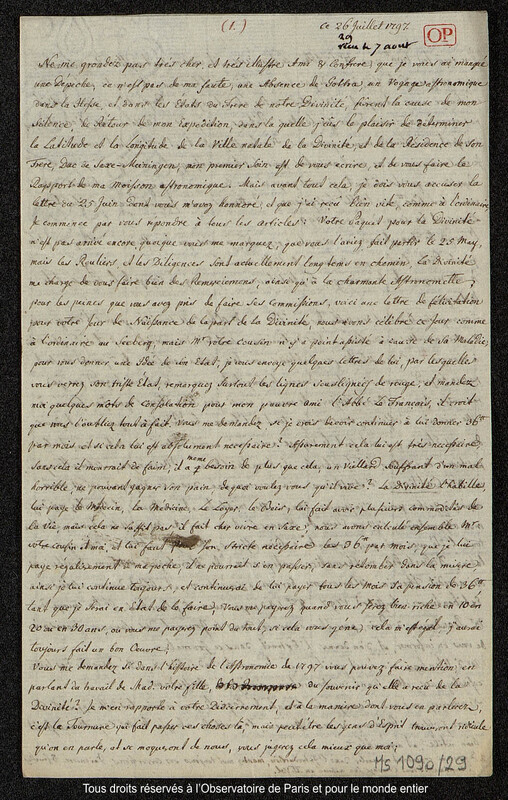 (1.)
ce 26 Juillet 1797.
29
reçu le 7 aout
OP
Ne me grondez pas très cher, et très illustre Ami & Confrere, que je vous ai manqué
une Depeche, ce n'est pas de ma faute, une Absence de Gotha, un Voyage astronomique
dans la Hesse, et dans les Etats du frere de notre Divinité, furent la cause de mon
silence. De Retour de mon expedition, dans la quelle j'eus le plaisir de determiner
la Latitude et la Longitude de la Ville natale de la Divinité, et de la Résidence de Son
frere, Duc de Saxe-Meiningen, mon premier soin est de vous ecrire, et de vous faire le
Rapport de ma Moisson astronomique. Mais avant tout cela, je dois vous accuser la
lettre du 25 Juin dont vous m'avez honnoré, et que j'ai reçu bien vite, comme à l'ordinaire
Je commence par vous repondre à tous les articles: Votre Paquet pour la Divinité
n'est pas arrivé encore, quoique vous me marquez, que vous l'aviez fait partir le 25 May,
mais les Rouliers, et les Diligences sont actuellement longtems en chemin, la Divinité
me charge de vous faire bien des Remerciemens, ainsi qu'à la charmante Astronomette,
pour les peines que vous avez pris de faire ses Commissions, voici une lettre de felicitation
pour votre Jour de Naissance de la part de la Divinité, nous avons célébré ce jour comme
à l'ordinaire au Seeberg, mais Mr votre cousin n'y a point assisté à cause de sa Maladie,
pour vous donner une Idée de son Etat, je vous envoye quelques lettres de lui, par les quelles
vous verrez son triste Etat, remarquez surtout les lignes soulignées de rouge, et mandez
moi quelques mots de Consolation pour mon pauvre ami l'Abbé Le Français, il croit
que vous l'oubliez tout à fait. Vous me demandez si je crois devoir continuer à lui donner 36tt
par mois, et si cela lui est absolument necessaire? Assurement cela lui est très necessaire
sans cela il mourrait de faim; il a même besoin de plus que cela, un Viellard souffrant d'un mal
horrible, ne pouvant gagner son pain, de quoi voulez vous qu'il vive? La Divinité l'habille,
lui paye le Medecin, la Medecine, le Loyer, le Bois, lui fait avoir plusieurs commodités de
la Vie, mais cela ne suffit pas, il fait cher vivre en Saxe; nous avons calculé ensemble Mr
votre cousin et moi, et lui faut pour son, stricte necessaire les 36tt par mois, que je lui
paye regulierement de ma poche, il ne pourroit s'en passer, sans retomber dans la misere
ainsi je lui continue toujours, et continuerai de lui payer tous les mois sa pension de 36tt
tant que je serai en Etat de le faire; Vous me payerez quand vous serez bien riche en 10 en
20 ou en 30 ans, ou vous me payerez point du tout, si cela vous gène, cela m'est égal, j'aurai
toujours fait un bon Oeuvre.
Vous me demandez si dans l'histoire de l'Astronomie de 1797 vous pouvez faire mention en
parlant du travail de Mad. votre fille, du souvenir qu'elle a reçu de la
Divinité? Je m'en rapporte à votre Discernement, et à la maniere dont vous en parlerez,
c'est la Tournure qui fait passer ces choses là; mais peut être les gens d'Esprit trouveront ridicule
qu'on en parle, et se moqueront de nous, vous jugerez cela mieux que moi;
Ms 1090/29
Tous droits réservés à l'Observatoire de Paris et pour le monde entier